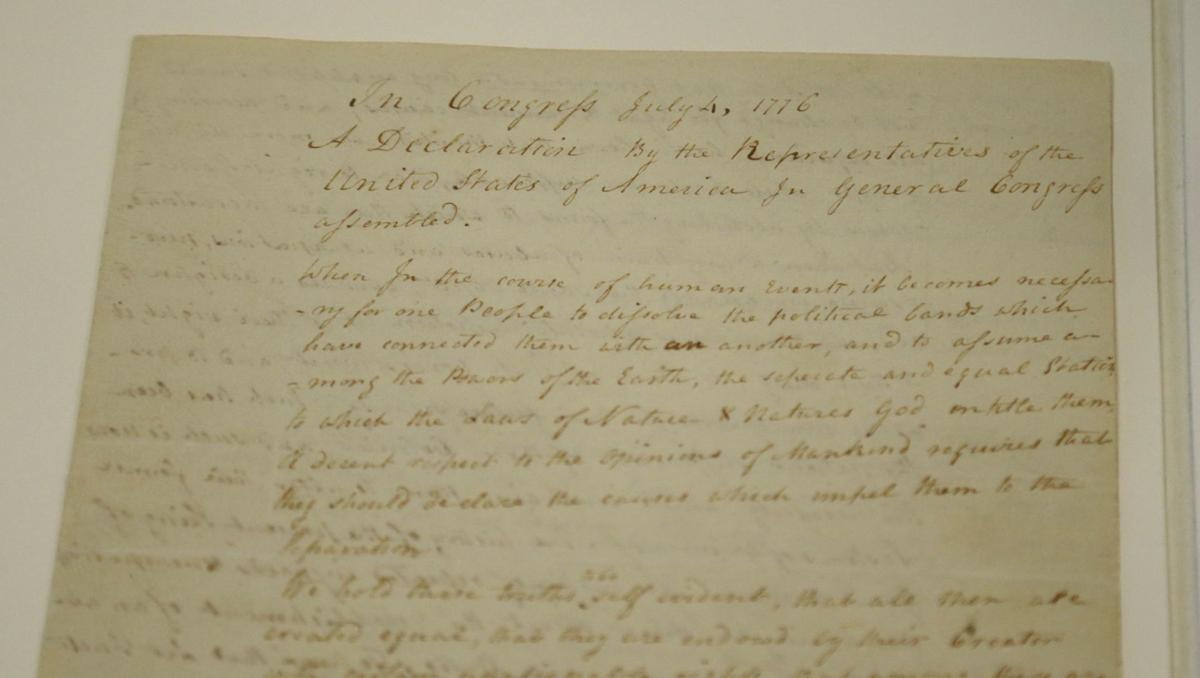 In Congress July 4, 1776
A Declaration By the Representatives of the
United States of America In General Congress
assembled.
When In the course of human Events, it becomes necessa-
-ry for one People to dissolve the political bands which
have connected them with an another, and to assume a-
-mong the Powers of the Earth, the seperate and equal Station
to which the Laws of Nature & Natures God entitle them,
A decent respect to the Opinions of Mankind requires that
they should declare the causes which impel them to the
Separation
We hold these truths self evident, that all men are
created equal, that they are endowed by their Creator